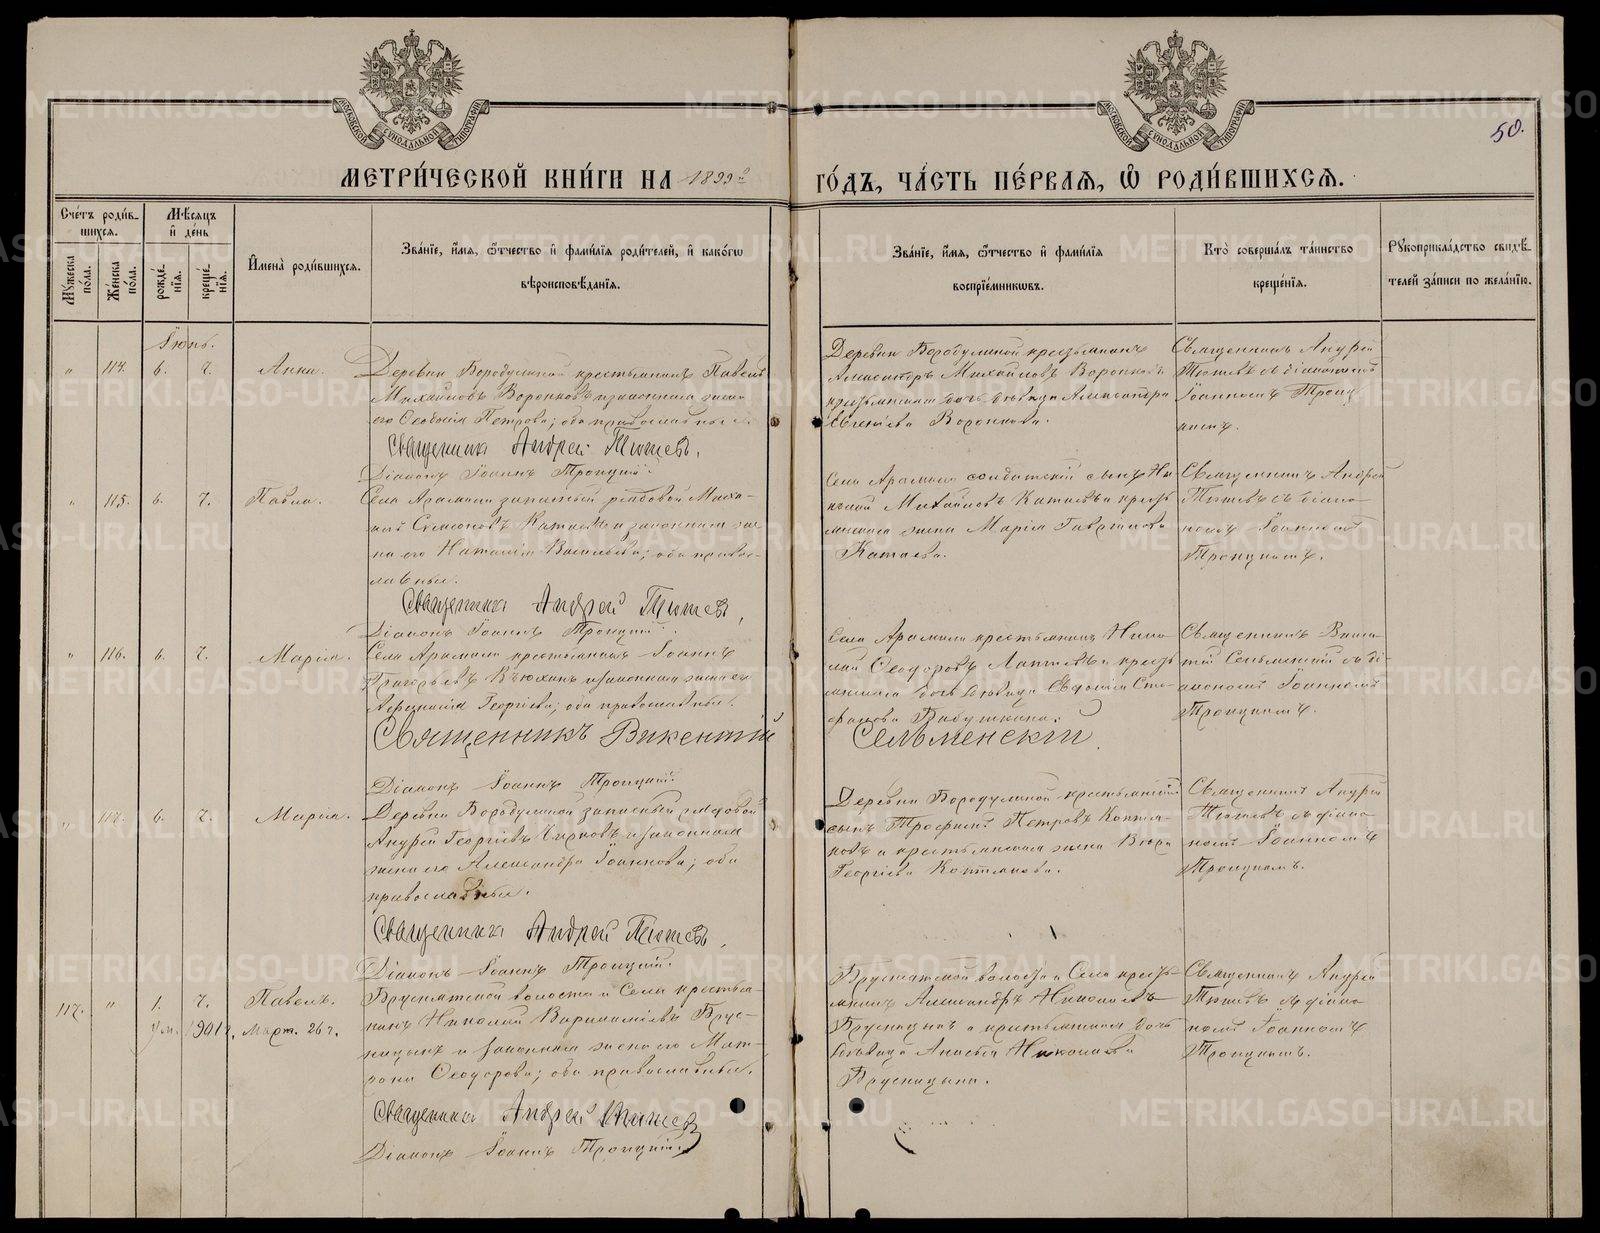 МОСКОВСКОЙ СѴНОДАЛЬНОЙ ТИПОГРАФІИ
МОСКОВСКОЙ СѴНОДАЛЬНОЙ ТИПОГРАФІИ
50.
МЕТРИ́ЧЕСКОЙ КНИ́ГИ НА 1899й
ГО́ДЪ, ЧА́СТЬ ПЕ́РВАѦ, Ѽ РОДИ́ВШИХСѦ.
Сче́тъ роди́в-
шихся.
Мѣ́сяцъ
и҆ де́нь
Му́жеска
по́ла.
Же́нска
по́ла.
рожде́-
нїя.
креще́-
нїя.
И҆мена̀ роди́вшихся.
Зва́нїе, и҆́мя, ѻ҆́тчество и҆ фами́лїя роди́телей, и҆ како́гѡ
вѣроисповѣ́данїя.
Зва́нїе, и҆́мя, ѻ҆́тчество и҆ фами́лїя
воспрїе́мникѡвъ.
Кто̀ соверша́лъ та́инство
креще́нїя.
Рукоприкла́дство свидѣ́-
телей за́писи по жела́нїю.
Іюнь.
" 114. 6. 7. Анна.
Деревни Бородулиной крестьянинъ Павелъ
Михайловъ Воронковъ и законная жена
его Ѳеодосія Петрова; оба православные.
Священникъ Андрей Тютевъ.
Діаконъ Іоаннъ Троицкій.
Деревни Бородулиной крестьянинъ
Александръ Михайловъ Воронковъ
крестьянская дочь дѣвица Александра
Евгеніева Воронкова.
Священникъ Андрей
Тютевъ съ діакономъ
Іоанномъ Троиц
кимъ.
" 115. 6. 7. Павла.
Села Арамили запасный рядовой Миха-
илъ Симеоновъ Катаевъ и законная же-
на его Наталія Васильева; оба правос-
лавные.
Священникъ Андрей Тютевъ,
Діаконъ Іоаннъ Троицкій.
Села Арамили солдатскій сынъ Ни
колай Михайловъ Катаевъ и кресть
янская жена Марія Гаврилова
Катаева.
Священникъ Андрей
Тютевъ съ діако-
номъ Іоанномъ
Троицкимъ.
" 116. 6. 7. Марія.
Села Арамили крестьянинъ Іоаннъ
Григорьевъ Вьюхинъ и законная жена его
Георгіева; оба православные.
Священникъ Викентій
Сельменскій
Діаконъ Іоаннъ Троицкій.
Села Арамили крестьянинъ Нико-
лай Ѳеодоровъ и кресть
янская дочь дѣвица Евдокія Сте-
фанова Бабушкина.
Священникъ Викен-
тій Сельменскій съ ді-
акономъ Іоанномъ
Троицкимъ.
" 117. 6. 7. Марія.
Деревни Бородулиной запасный рядовой
Андрей Георгіевъ и законная
жена его Александра Іоаннова; оба
православные.
Священникъ Андрей Тютевъ,
Діаконъ Іоаннъ Троицкій.
Деревни Бородулиной крестьянскій
сынъ Трофимъ Петровъ Коптя-
ковъ и крестьянская жена Вѣра
Георгіева Коптякова.
Священникъ Андрей
Тютевъ съ діако-
номъ Іоанномъ
Троицкимъ.
117. " 1. 7. Павелъ.
Ум. 1901 г. Март. 26 г.
Бруснятской волости и Села крестья-
нинъ Николай Брус-
ницынъ и законная жена его Мат-
рона Ѳеодорова; оба православные.
Священникъ Андрей Тютевъ
Діаконъ Іоаннъ Троицкій.
Бруснятской волости и Села кресть-
янинъ Александръ Николаевъ
Брусницынъ и крестьянская дочь
дѣвица Николаева
Брусницына.
Священникъ Андрей
Тютевъ съ діако-
номъ Іоанномъ
Троицкимъ.
METRIKI.GASO-URAL.RU